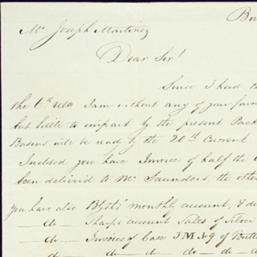 Mr Joseph Martinez
Dear Sir!
Since I had th
the 6th ulto I am without any of your favor
but little to impart by the present Pack
Basin will be made by the 20th Current
Inclosed you have Invoice of half the
been delivered to Mr Saunders the othe
you have also Blyths' month account, & de
—do— Sharps account Sales of Silver
—do— Invoice of Case J M No 9 of Butt
—do— do— do— do